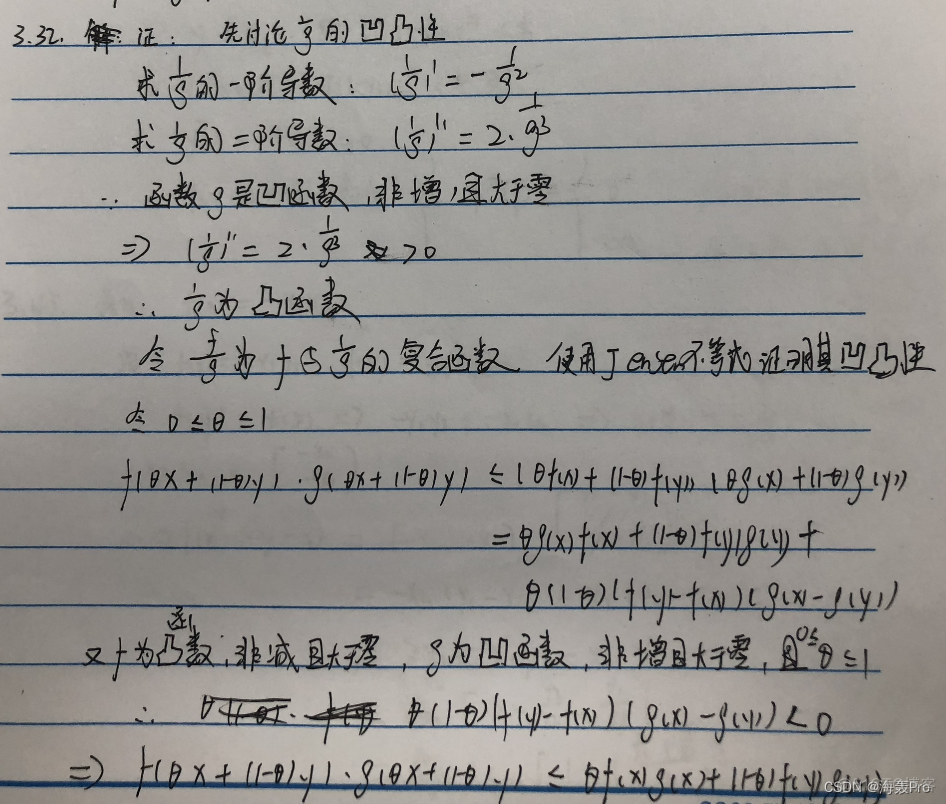 3.32. 解: 证: 先讨论 1/g 的凹凸性
求 1/g 的一阶导数: (1/g)' = - 1/g²
求 1/g 的二阶导数: (1/g)'' = 2 · 1/g³
∵ 函数 g 是凹函数,非增,且大于零
=> (1/g)'' = 2 · 1/g³ > 0
∴ 1/g 为凸函数
令 f/g 为 f 与 1/g 的复合函数 使用 Jensen 不等式证明其凹凸性
令 0 ≤ θ ≤ 1
f(θx + (1-θ)y) · g(θx + (1-θ)y) ≤ (θf(x) + (1-θ)f(y)) (θg(x) + (1-θ)g(y))
= θg(x)f(x) + (1-θ)f(y)g(y) +
θ(1-θ)(f(y)-f(x))(g(x)-g(y))
又 f 为凸函数,非减且大于零, g 为凹函数,非增且大于零, 0≤θ≤1
∴ θ(1-θ)(f(y)-f(x))(g(x)-g(y)) < 0
=> f(θx + (1-θ)y) · g(θx + (1-θ)y) ≤ θf(x)g(x) + (1-θ)f(y)g(y)
CSDN @海轰Pro